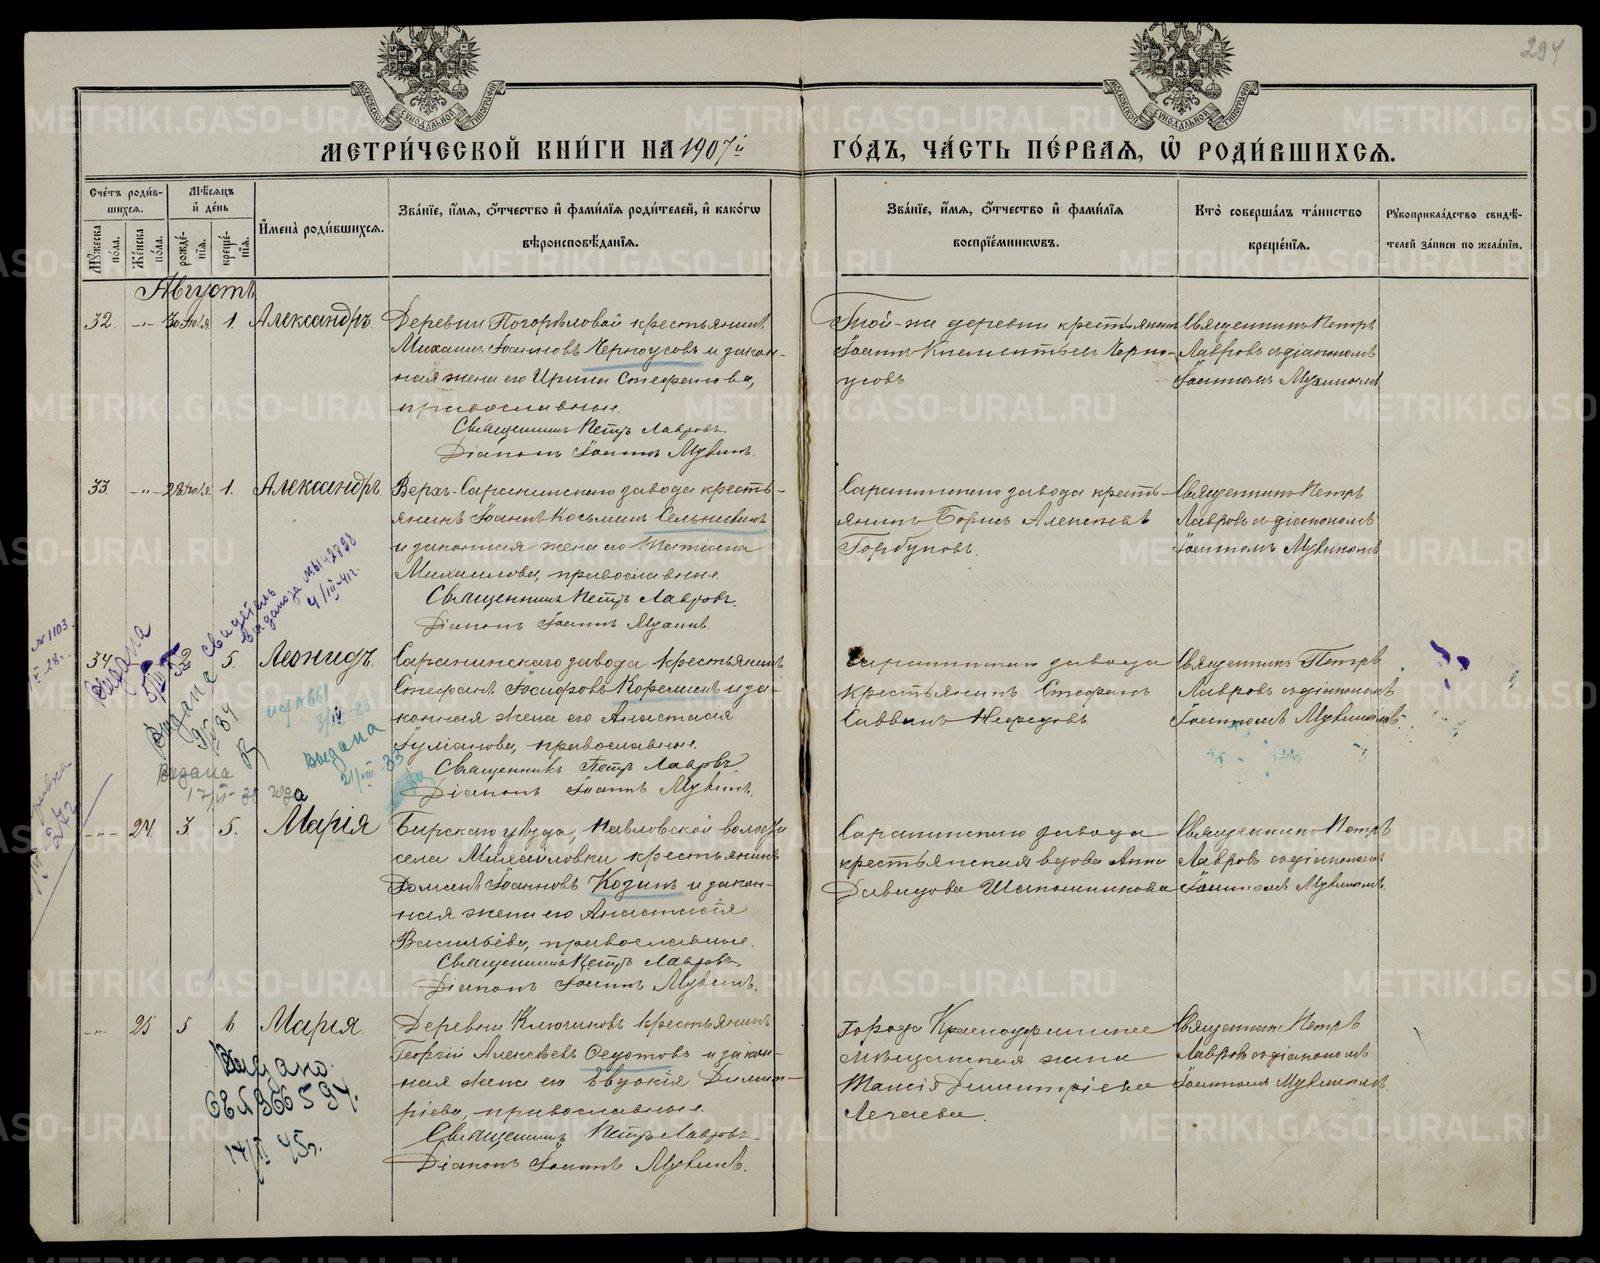 294
МЕТРИ́ЧЕСКОЙ КНИ́ГИ НА 1907й ГО́ДЪ, ЧА́СТЬ ПЕ́РВАЯ, Ѡ҆ РОДИ́ВШИХСЯ.
Сче́тъ роди́в-
шихся.
Мѣ́сяцъ
и҆ де́нь
Мꙋ́жеска по́ла.
Же́нска по́ла.
рожде́-
нїя.
креще́-
нїя.
И҆мена̀ роди́вшихся.
Зва́нїе, и҆́мя, ѻ҆́тчество и҆ фами́лїя роди́телей, и҆ како́гѡ
вѣроисповѣ́данїя.
Зва́нїе, и҆́мя, ѻ҆́тчество и҆ фами́лїя
воспрїе́мникѡвъ.
Кто̀ соверша́лъ та́инство
креще́нїя.
Рꙋкоприкла́дство свидѣ́-
телей за́писи по жела́нїю.
Августъ
32. -„- 30 Июля 1. Александръ.
Деревни Погорѣловой крестьянинъ
Михаилъ Іоанновъ Черноусовъ и закон-
ная жена его Ирина Стефанова,
православные.
Священникъ Петръ Лавровъ.
Діаконъ Іоаннъ Мухинъ.
Той-же деревни крестьянинъ
Іоаннъ Климентьевъ Черно-
усовъ
Священникъ Петръ
Лавровъ съ діакономъ
Іоанномъ Мухинымъ
33. -„- 28 Июля 1. Александръ.
Верхъ-Саранинскаго завода кресть-
янинъ Іоаннъ Косьминъ Сельнивинъ
и законная жена его Татіана
Михаилова, православные.
Священникъ Петръ Лавровъ.
Діаконъ Іоаннъ Мухинъ.
Саранинскаго завода кресть-
янинъ Борисъ Алексѣевъ
Горбуновъ.
Священникъ Петръ
Лавровъ съ діакономъ
Іоанномъ Мухинымъ
34 5. Леонидъ.
Саранинскаго завода крестьянинъ
Стефанъ Іосифовъ Корелинъ и за-
конная жена его Анастасія
Іуліанова, православные.
Священникъ Петръ Лавровъ.
Діаконъ Іоаннъ Мухинъ.
Саранинскаго завода
крестьянинъ Стефанъ
Саввинъ Нефедовъ
Священникъ Петръ
Лавровъ съ діакономъ
Іоанномъ Мухинымъ.
№ 1103
Выдана
свидетель
4/III-41г.
Выдана
Выдана
21/VIII 33
Выдана
-„- 24 3 5. Марія
Бирскаго уѣзда, Павловской волости
села Михайловки крестьянинъ
Романъ Іоанновъ Козинъ и закон-
ная жена его Анастасія
Васильева, православные.
Священникъ Петръ Лавровъ.
Діаконъ Іоаннъ Мухинъ.
Саранинскаго завода
крестьянская вдова Анна
Давидова Шапошникова
Священникъ Петръ
Лавровъ съ діакономъ
Іоанномъ Мухинымъ.
-„- 25 5 6 Марія.
Деревни Ключиковъ крестьянинъ
Георгій Алексѣевъ Федотовъ и закон-
ная жена его Евдокія Димит-
ріева, православные.
Священникъ Петръ Лавровъ.
Діаконъ Іоаннъ Мухинъ.
Города Красноуфимска
мѣщанская жена
Таисія Димитріева
Лечаева.
Священникъ Петръ
Лавровъ съ діакономъ
Іоанномъ Мухинымъ.
Выдано.
45г.